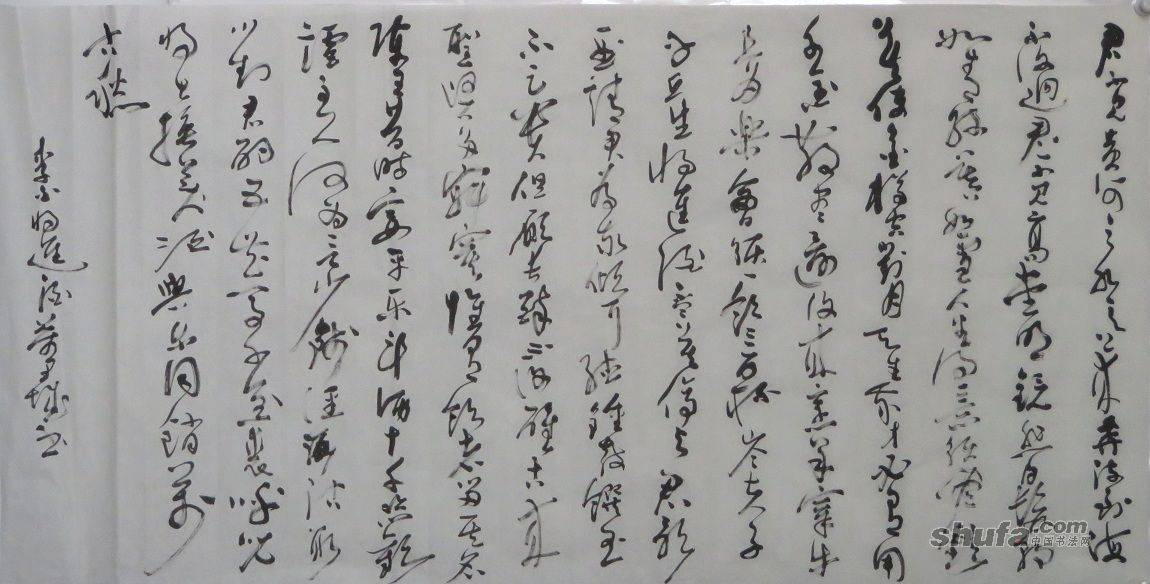 君不見黄河之水天上来奔流到海
不復迴君不見高堂明鏡悲白髮朝
如青絲暮如雪人生得意須盡歡
莫使金樽空對月天生我才必有用
千金散盡還復来烹羊宰牛
且為樂會須一飲三百杯岑夫子
丹丘生将進酒杯莫停与君歌
一曲請君為我傾耳聽鐘鼓饌玉
不足貴但願長醉不願醒古来
聖賢皆寂寞惟有飲者留其名
陳王昔時宴平樂斗酒十千恣歡
謔主人何為言少錢徑須沽取
對君酌五花馬千金裘呼児
将出換美酒與尔同銷萬
古愁
李白将進酒
shufa.com
中国书法网